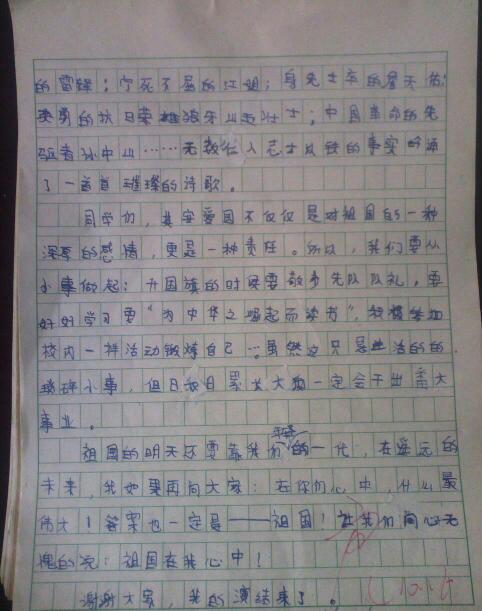 的雷锋；宁死不屈的江姐；身先士卒的詹天佑；
英勇的抗日英雄狼牙山五壮士；中国革命的先
驱者孙中山……无数仁人志士以铁的事实吟诵
了一首首璀璨的诗歌。
同学们，其实爱国不仅仅是对祖国的一种
深厚的感情，更是一种责任。所以，我们要从
小事做起：升国旗的时候要敬少先队队礼，要
好好学习要“为中华之崛起而读书”，积极参加
校内一种活动锻炼自己…虽然这只是生活的的
琐碎小事，但日积月累长大后一定会干出番大
事业。
祖国的明天还要靠我们年轻的一代，在遥远的
未来，我如果再问大家：在你们心中，什么最
伟大！答案也一定是——祖国！让我们问心无
愧的说：祖国在我心中！
谢谢大家，我的演结束了。